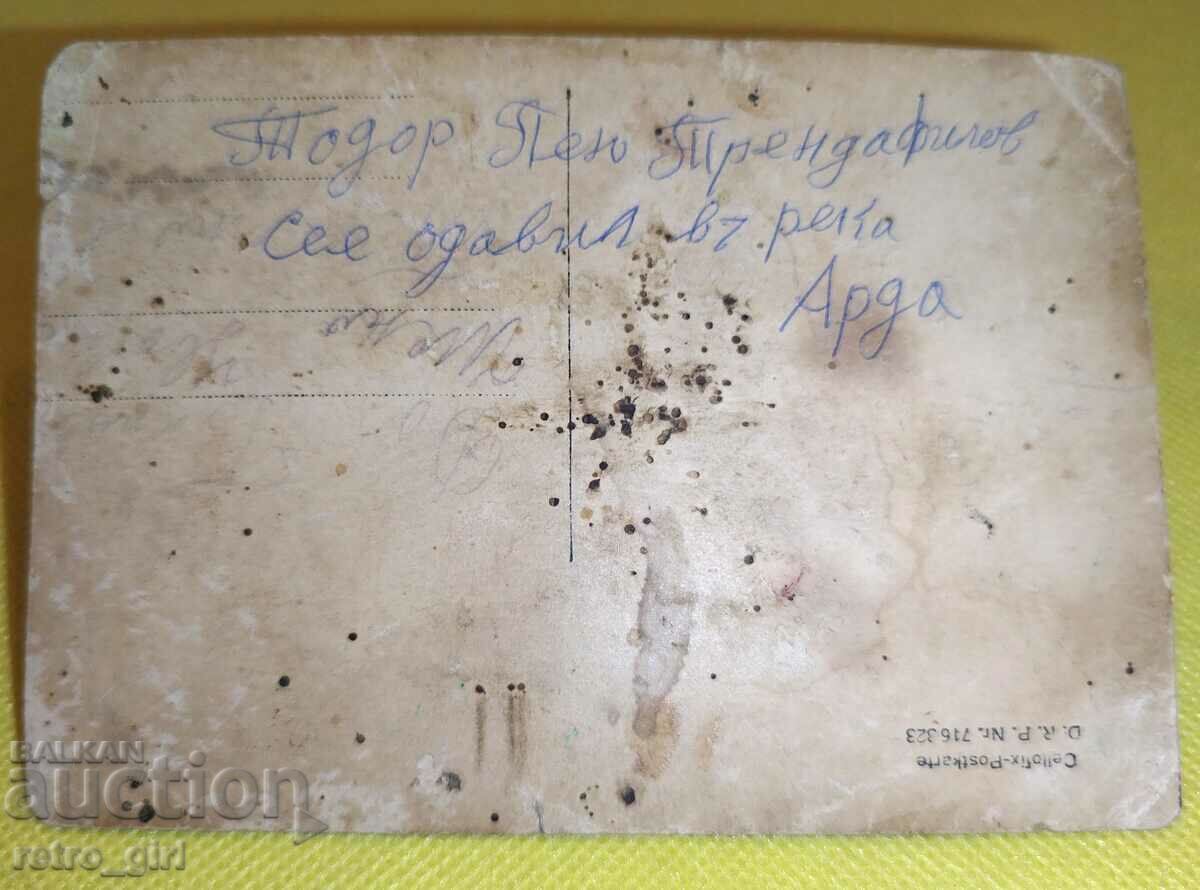 Тодор Пею Трендафилов
сее одавил въ река
Арда
Cellofix-Postkarte
D. R. P. Nr. 716323
BALKAN
auction
retro_girl